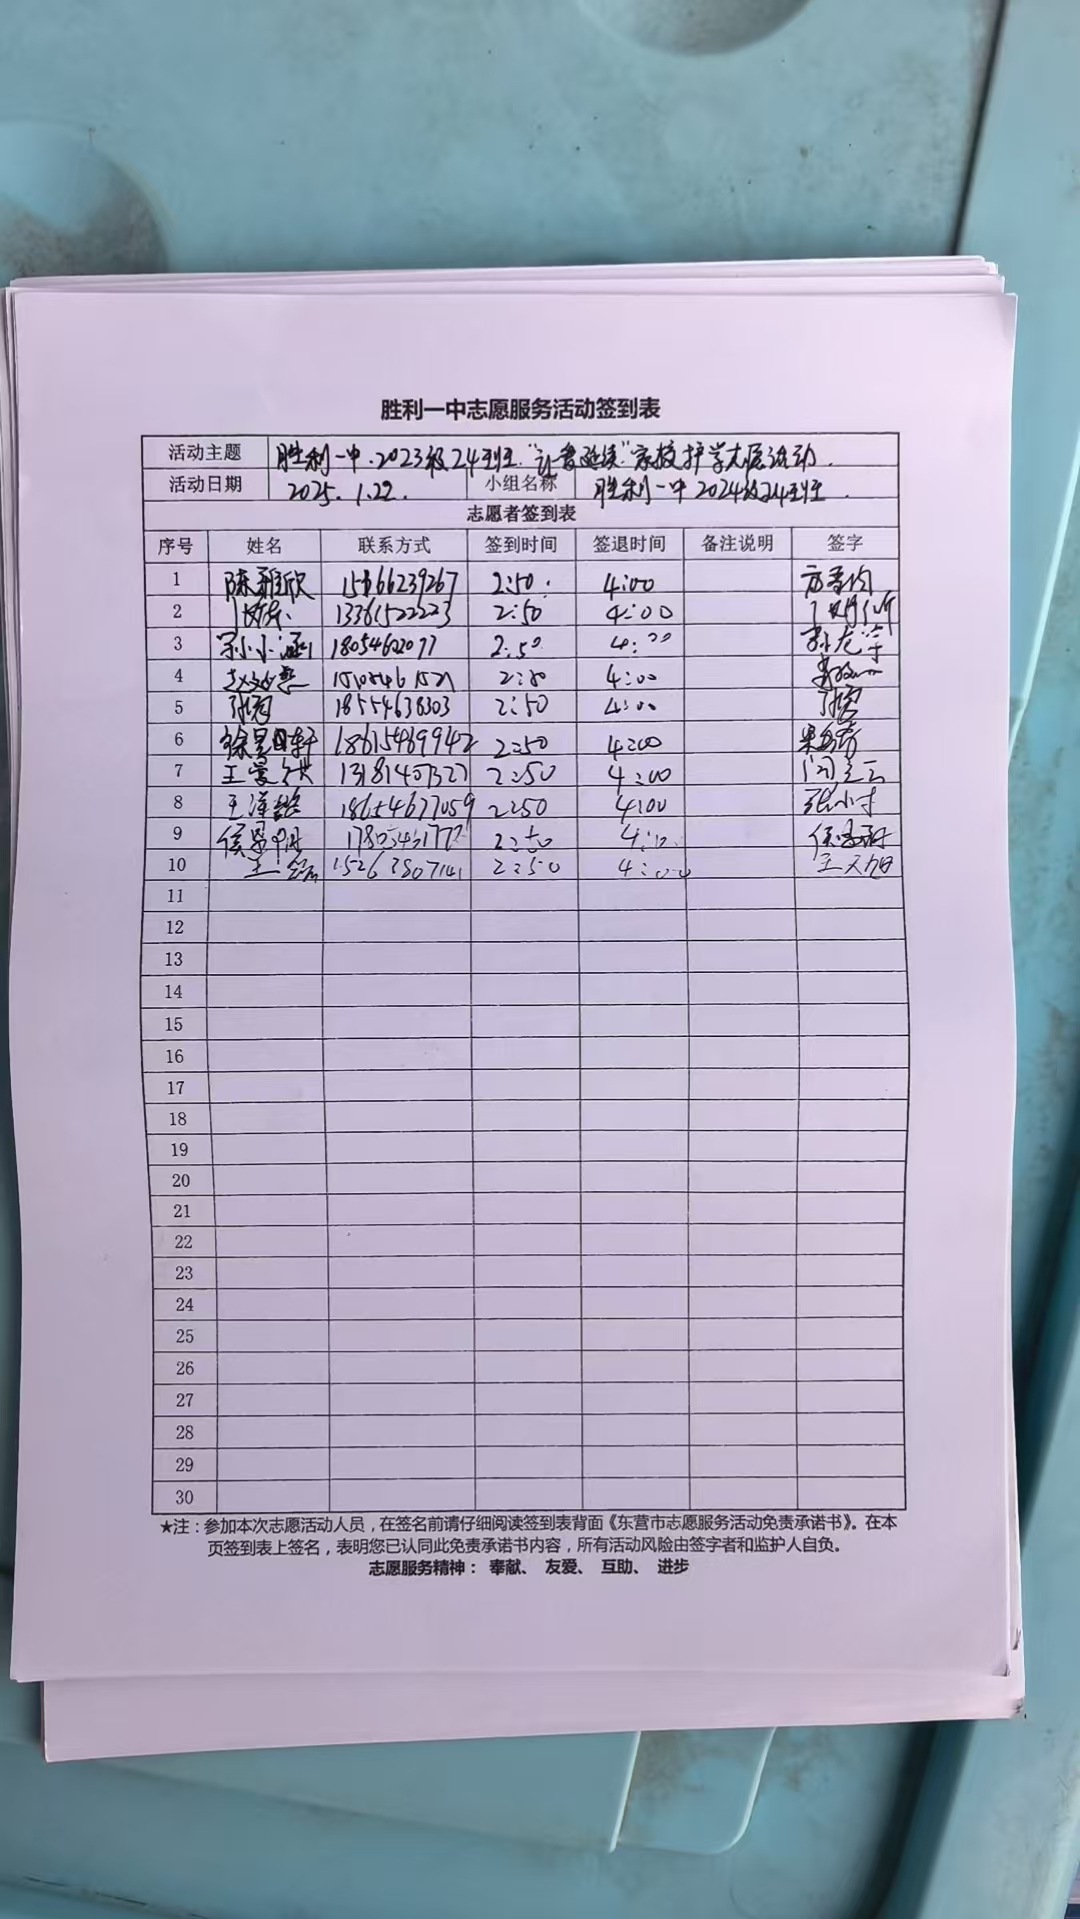 胜利一中志愿服务活动签到表
活动主题 胜利一中.2023级24班."让爱延续"家校护学志愿活动.
活动日期 2025.1.22. 小组名称 胜利一中2024级24班.
志愿者签到表
序号 姓名 联系方式 签到时间 签退时间 备注说明 签字
1 陈雅欣 2:50. 4:00
2 13361522223 2:50 4:00
3 小涵 18054622077 2:50 4:00 孙龙
4 赵 4:00
5 张冠 18554638303 2:50 4:00 张
6 徐昊轩 18615469942 2:50 4:00
7 王 2:50 4:00
8 王泽 18654677059 2:50 4:00 张小
9 侯 2:50 侯
10 王 2:50 4:00 王
11
12
13
14
15
16
17
18
19
20
21
22
23
24
25
26
27
28
29
30
★注：参加本次志愿活动人员，在签名前请仔细阅读签到表背面《东营市志愿服务活动免责承诺书》。在本
页签到表上签名，表明您已认同此免责承诺书内容，所有活动风险由签字者和监护人自负。
志愿服务精神： 奉献、 友爱、 互助、 进步